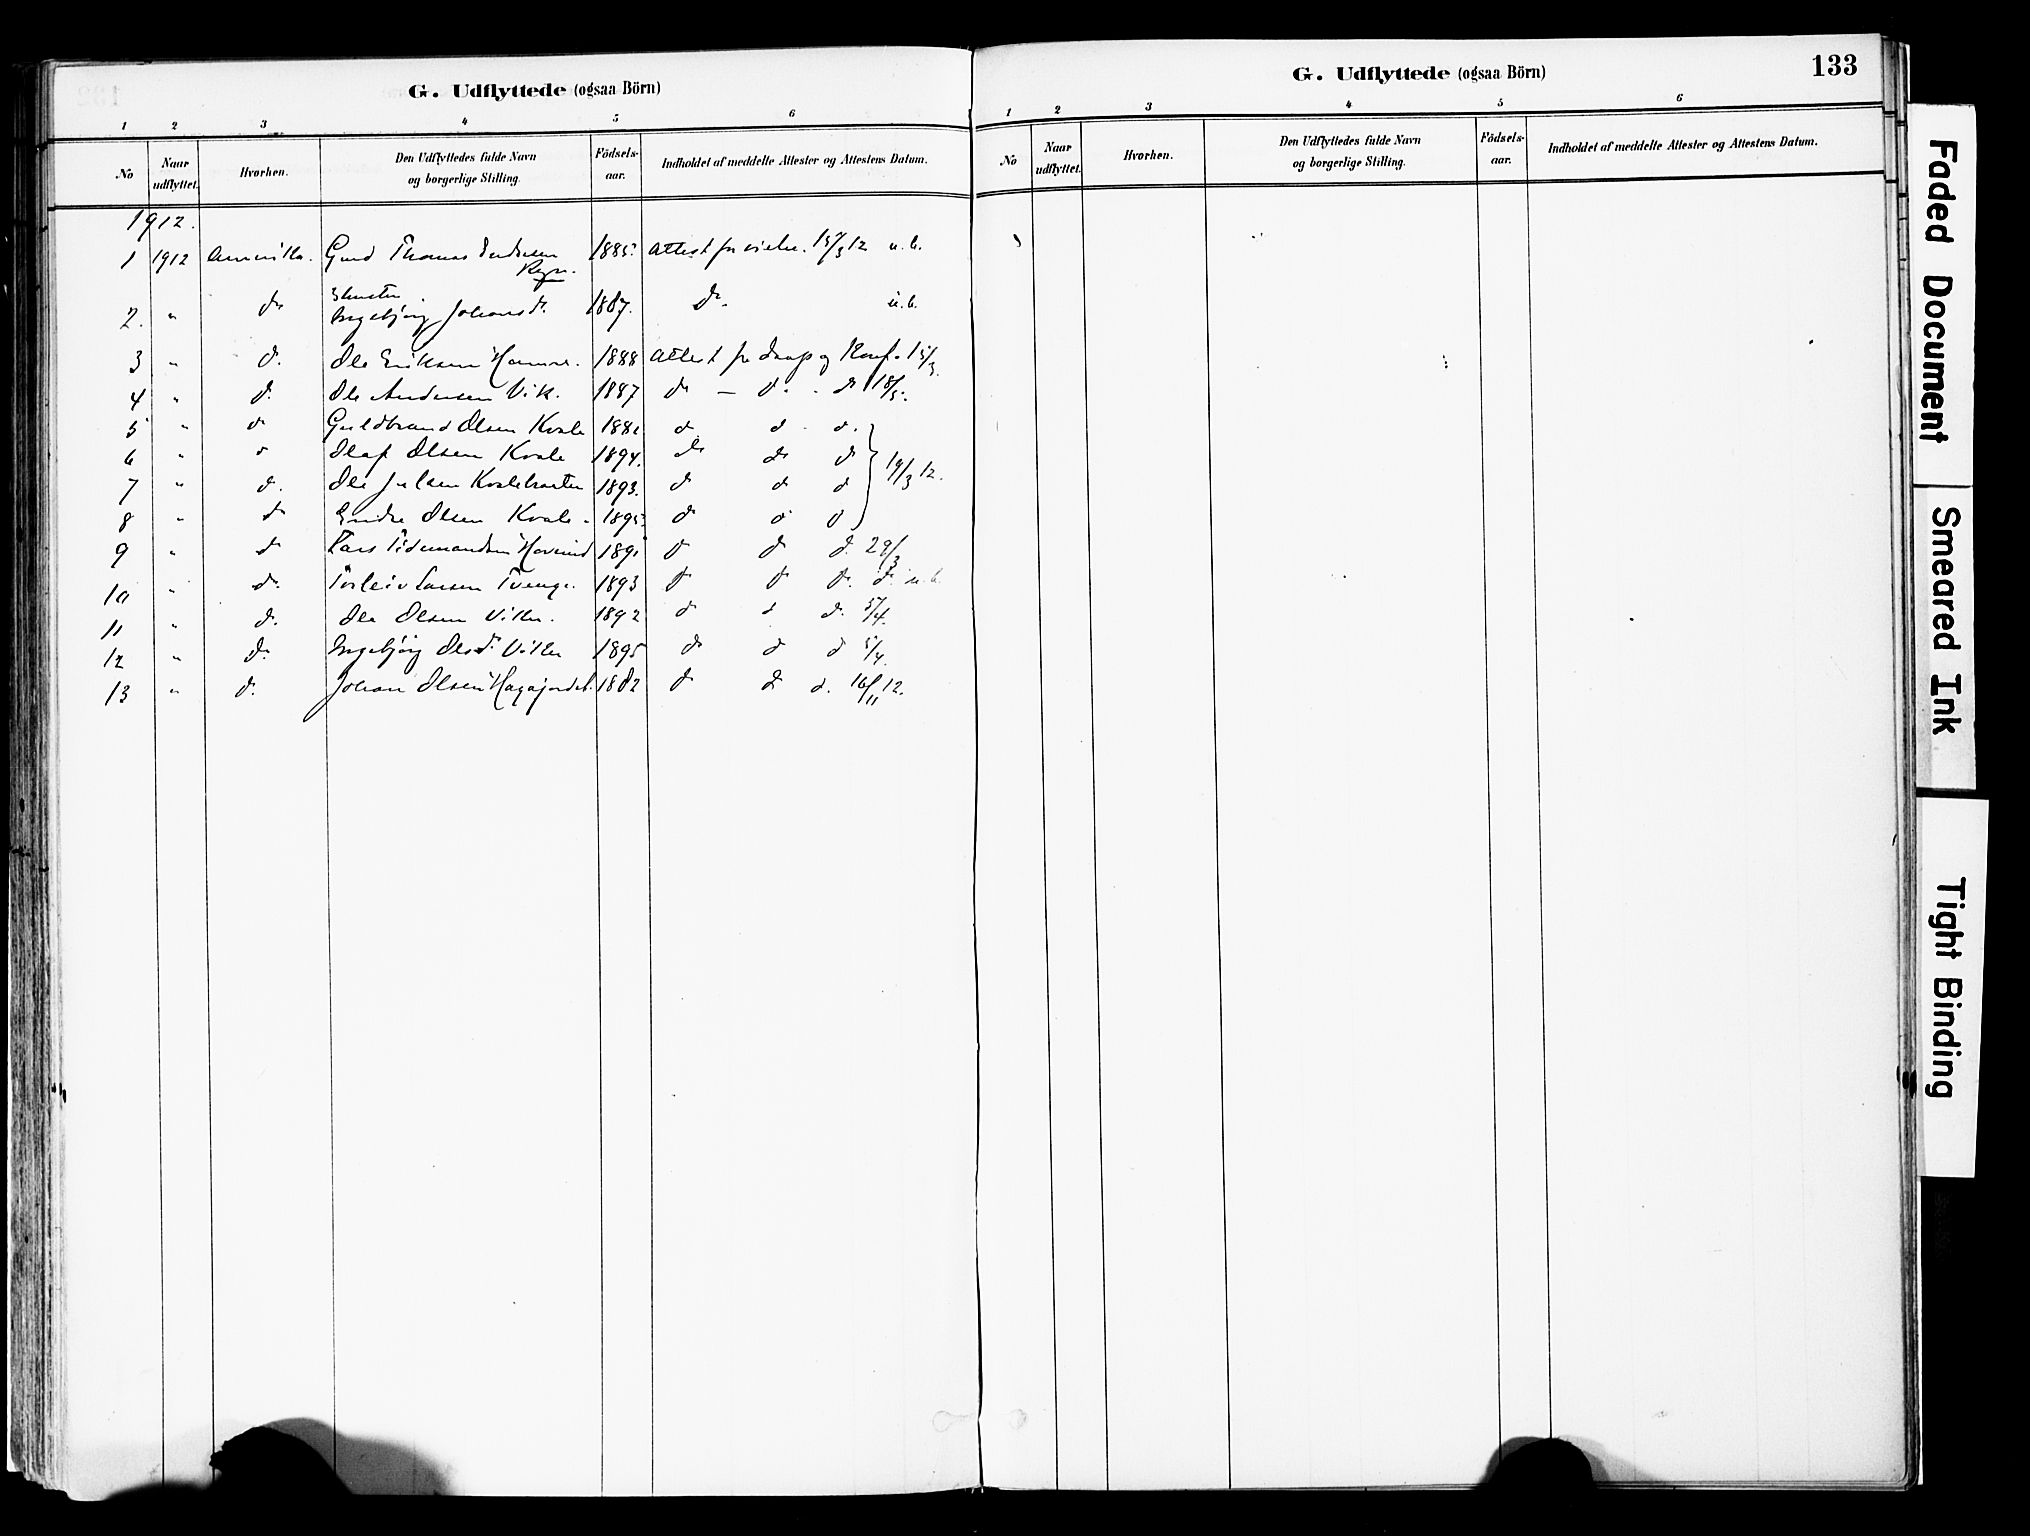 G. Udflyttede (ogsaa Börn)
1 2 3 4 5 6
No Naar udflyttet. Hvorhen. Den Udflyttedes fulde Navn og borgerlige Stilling. Födsels-aar. Indholdet af meddelte Attester og Attestens Datum.
1912.
1 1912 Amerika. Thomas 1885. Attest for vielse. 15/3 12 u.b.
2. " do Ingebjörg Johansd. 1887. do. u.b.
3 " do. Ole Eriksen 1888 Attest for daap og Konf. 15/3.
4 " do. Ole Andersen Vik. 1887 do — do. - do 18/3.
5 " do Guldbrand Olsen Kvale do do - do.
6 " do Olaf Olsen Kvale 1894. do do do
7 " do. Ole Juleen 1893. do do do 19/3 12.
8 " do Endre Olsen Kvale. 1895. do do do
9 " do Lars Tidemandsen Havrud 1891 do do do. 29/3
10 " do. Torleiv Larsen Tvenge. 1893 do do do. do. u.b.
11 " do. Ole Olsen Viker. 1892 do do do. 5/4.
12 " do. Ingebjörg Olsd. Viker 1895 do do do 5/4.
13 " do. Johan Olsen Hagajordet. 1882 do do do. 16/11 12.
G. Udflyttede (ogsaa Börn)
133
1 2 3 4 5 6
No Naar udflyttet. Hvorhen. Den Udflyttedes fulde Navn og borgerlige Stilling. Födsels-aar. Indholdet af meddelte Attester og Attestens Datum.
Faded Document
Smeared Ink
Tight Binding